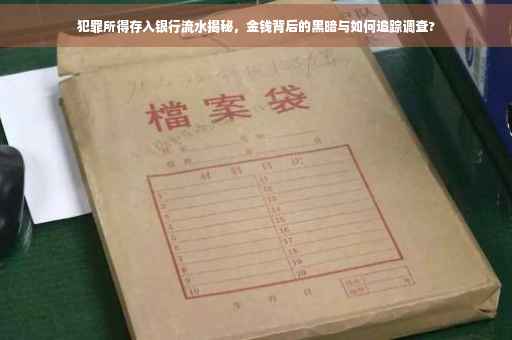 犯罪所得存入银行流水揭秘，金钱背后的黑暗与如何追踪调查?
檔案袋
材料目次
1
2
3
4
5
6
7
8
9
10
11
12
13
14
15
16
17
18
19
20
年 月 日